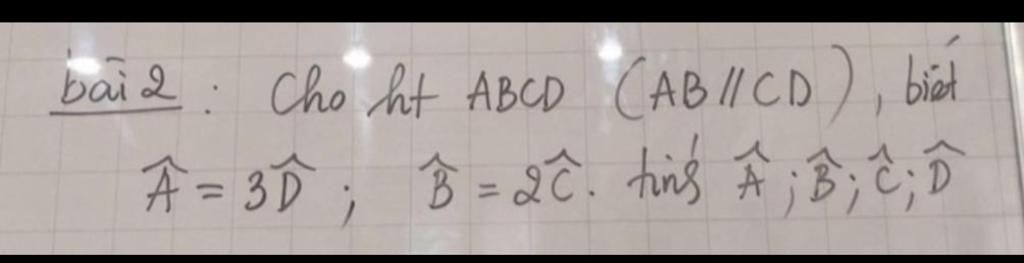 bài 2 : Cho ht ABCD (AB // CD), biết
Â = 3D̂ ; B̂ = 2Ĉ. tính Â ; B̂ ; Ĉ ; D̂